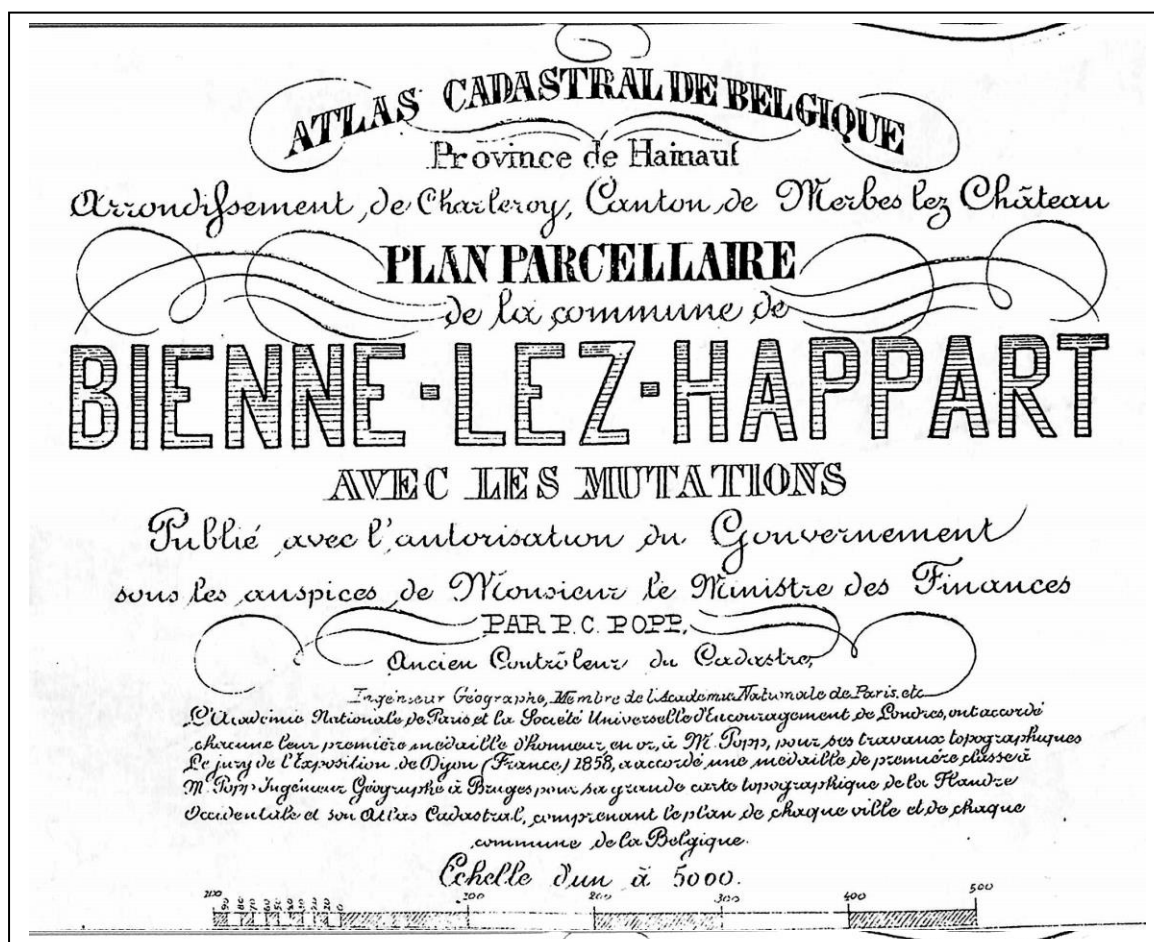 ATLAS CADASTRAL DE BELGIQUE
Province de Hainaut
Arrondissement de Charleroy, Canton de Merbes lez Château
PLAN PARCELLAIRE
de la commune de
BIENNE-LEZ-HAPPART
AVEC LES MUTATIONS
Publié avec l'autorisation du Gouvernement
sous les auspices de Monsieur le Ministre des Finances
PAR P. C. POPP,
Ancien Contrôleur du Cadastre,
Ingénieur Géographe, Membre de l'Academie Nationale de Paris, etc
L'Académie Nationale de Paris et la Société Universelle d'Encouragement de Londres, ont accordé
chacune leur première médaille d'honneur en or, à M. Popp, pour ses travaux topographiques
Le jury de l'Exposition de Dijon (France) 1858, a accordé une médaille de première classe à
M. Popp Ingénieur Géographe à Bruges pour sa grande carte topographique de la Flandre
Occidentale et son Atlas Cadastral, comprenant le plan de chaque ville et de chaque
commune de la Belgique.
Echelle d'un à 5000.
100 90 80 70 60 50 40 30 20 0 100 200 300 400 500